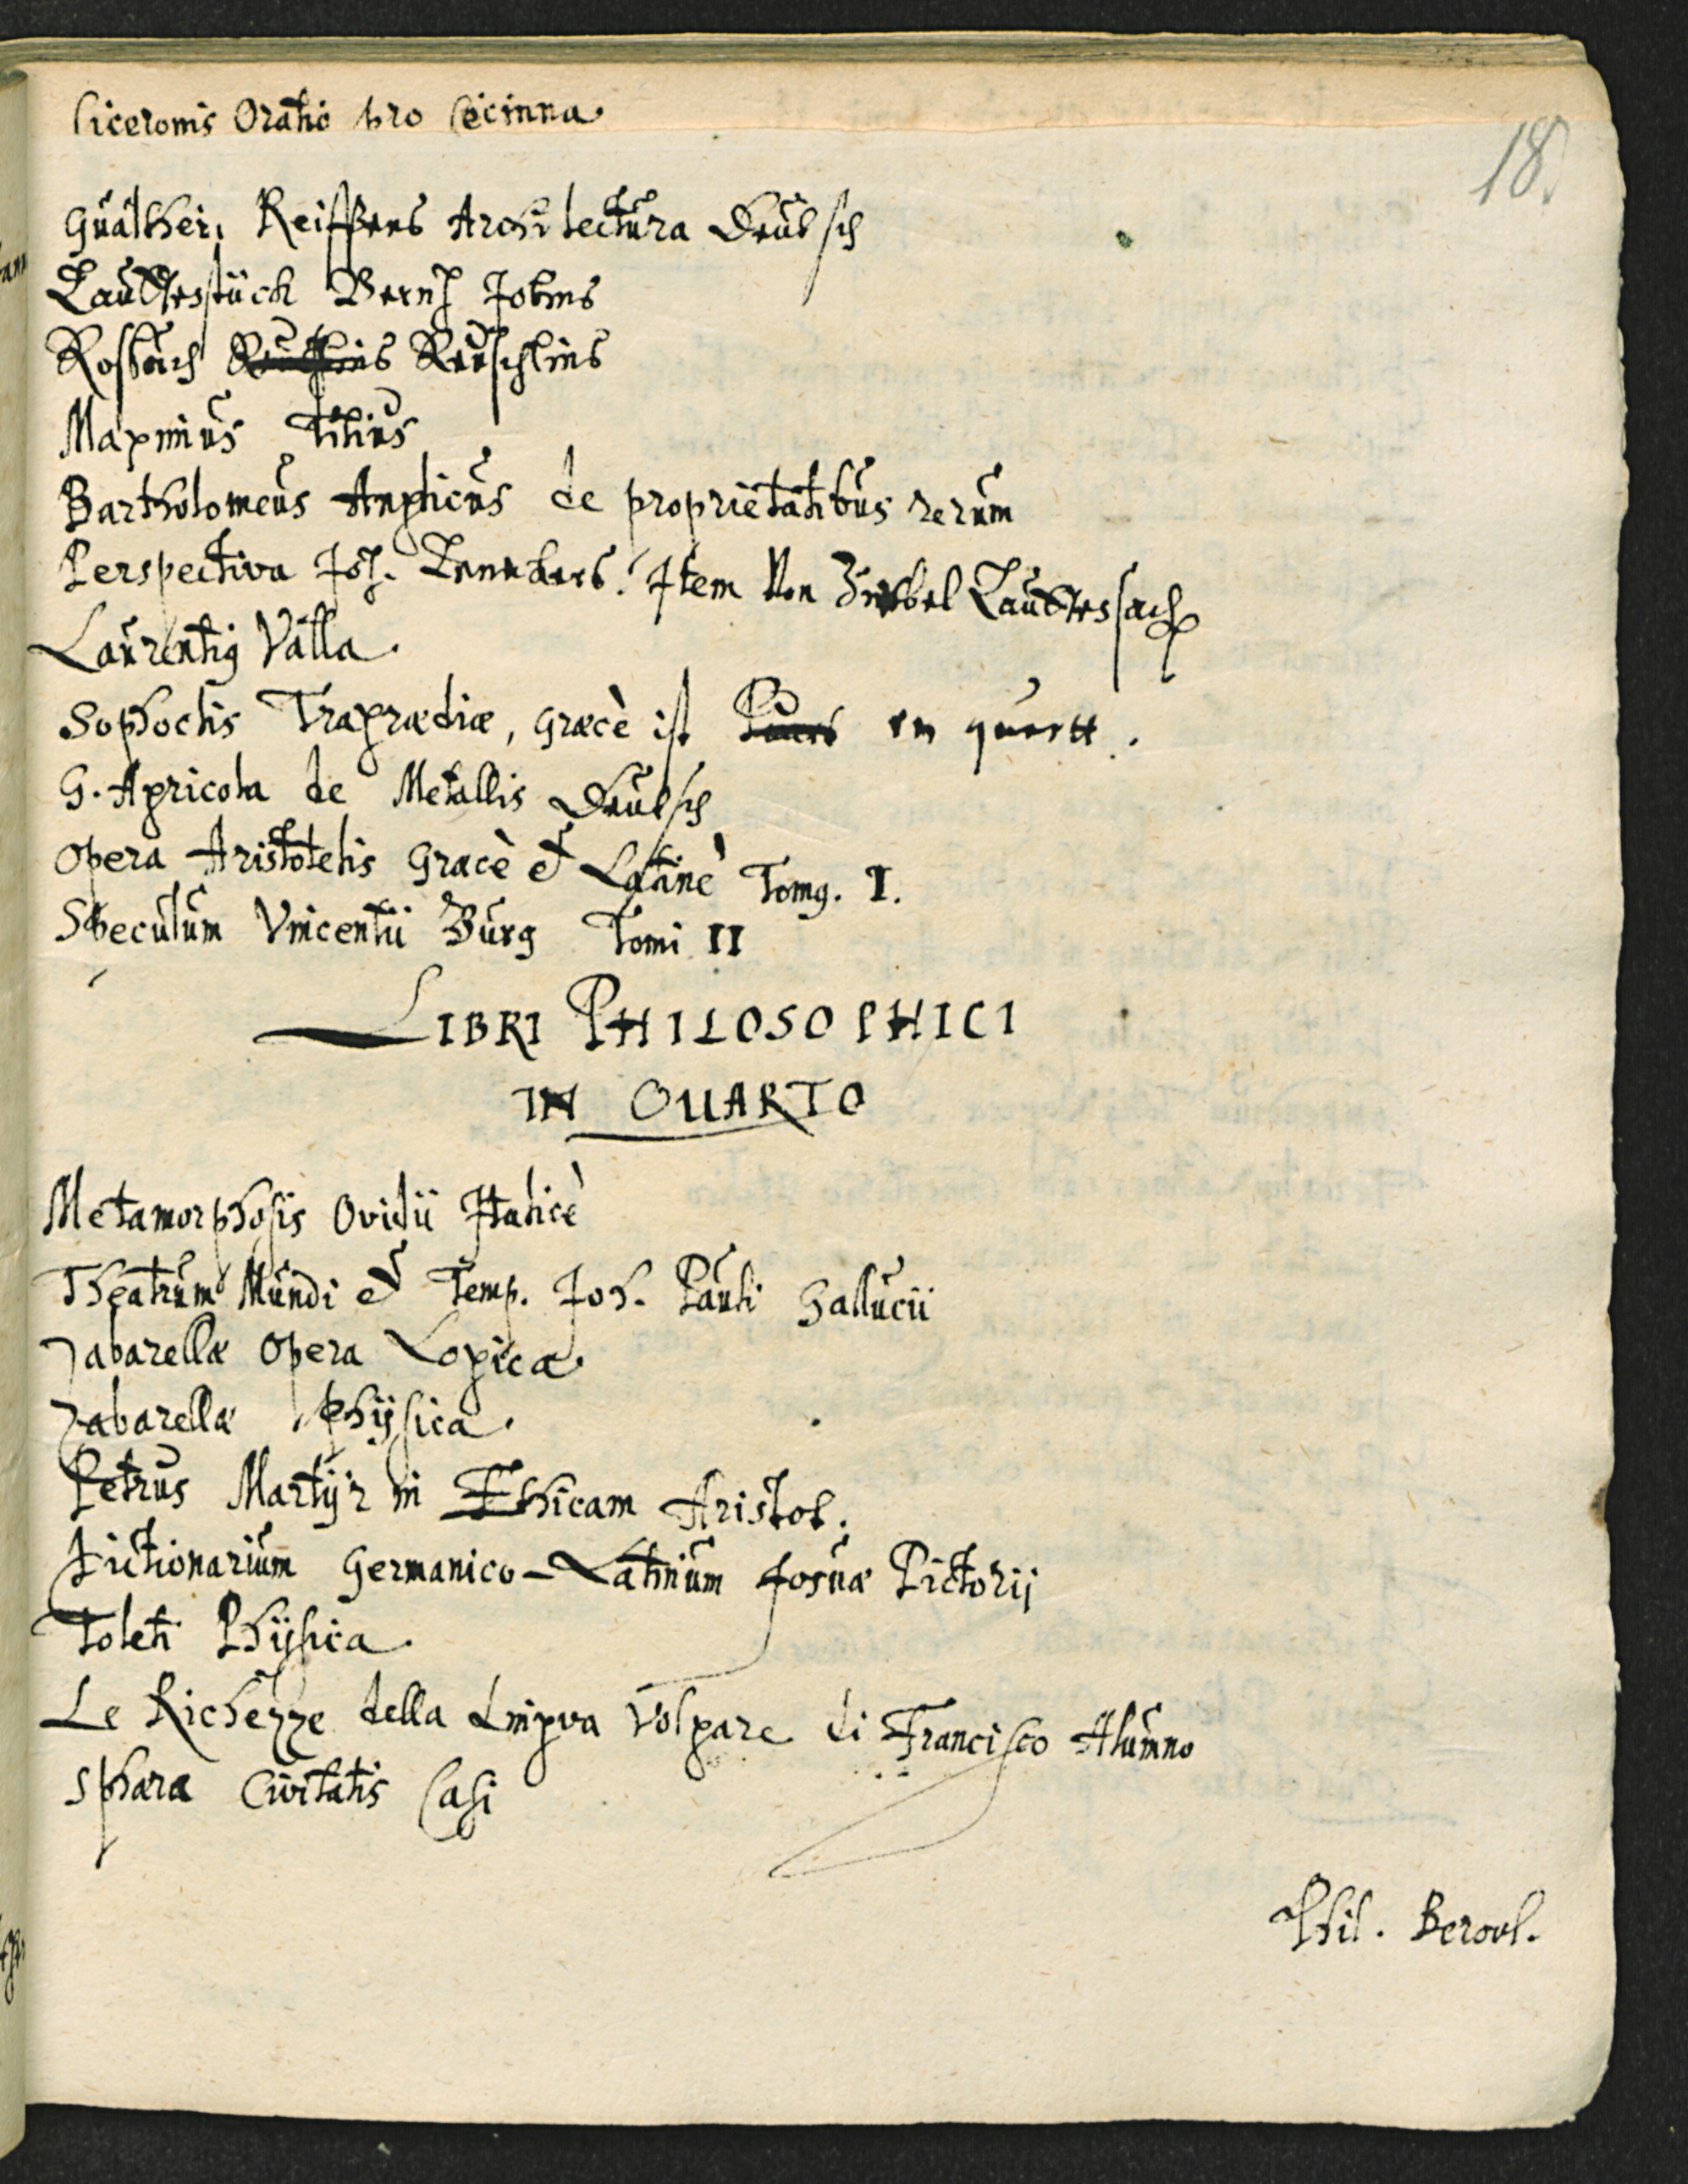 Ciceronis Oratio pro Cecinna
18.
Gualtheri Reiffens Architectura Deutsch
Lauttenstück Bernh Jobins
Roßbuch Reuschlins
Maximus Titius
Bartholomeus Anglicus de proprietatibus rerum
Perspectiva Joh. Lenckers. Item Von Lauttensach
Laurentius Valla
Sophoclis Tragœdiæ, græcè ist in quart.
G. Agricola de Metallis Deutsch
Opera Aristotelis Græcè et Latinè Tomus. I.
Speculum Vincentii Burg Tomi II
LIBRI PHILOSOPHICI
IN QUARTO
Metamorphosis Ovidii Italicè
Theatrum Mundi et Temp. Joh. Pauli Gallucii
Zabarellæ Opera Logica
Zabarellæ Phÿsica.
Petrus Martÿr in Ethicam Aristot.
Dictionarium Germanico-Latinum Josuæ Pictorij
Toleti Phÿsica
Le Richezze della Lingva Volgare di Francisco Alumno
Sphæra Civitatis Casi
Phil. Beroal.